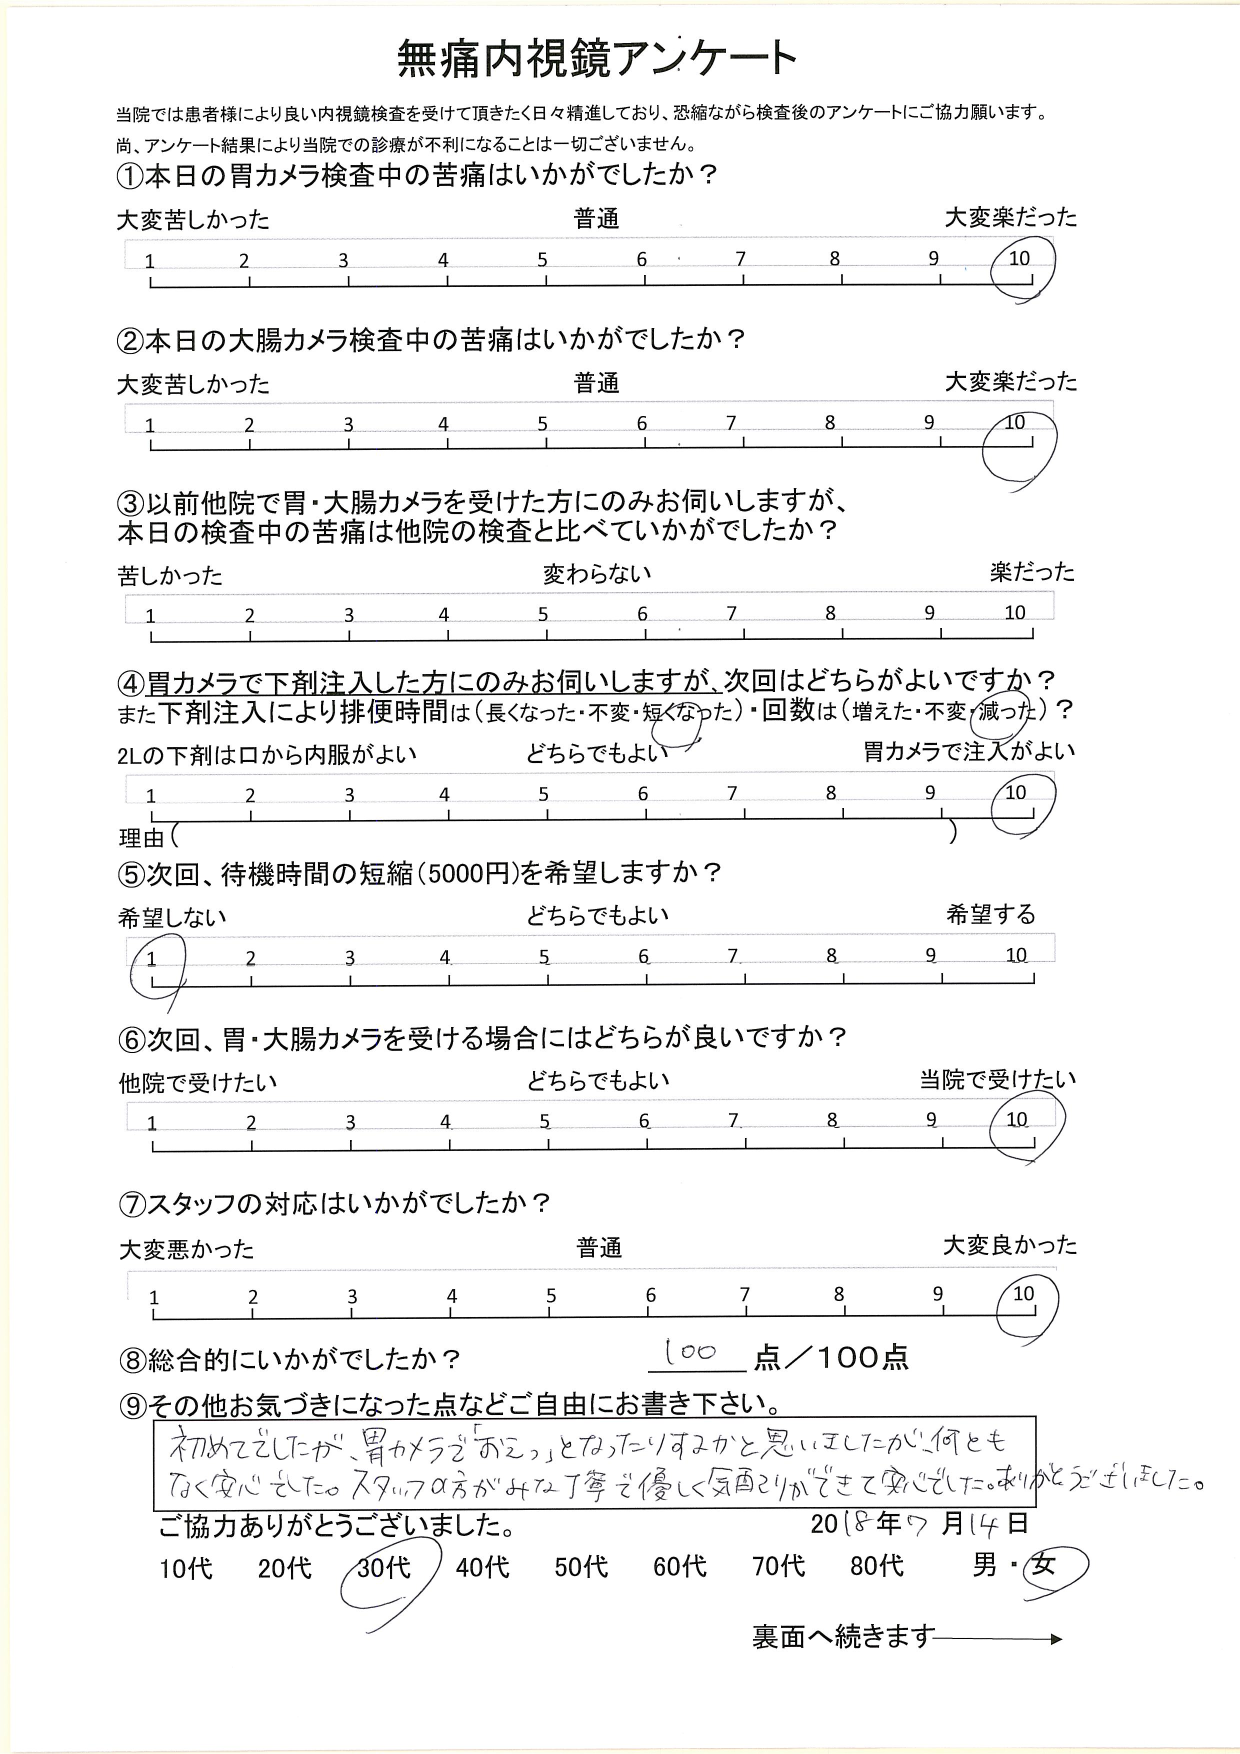 無痛内視鏡アンケート
当院では患者様により良い内視鏡検査を受けて頂きたく日々精進しており、恐縮ながら検査後のアンケートにご協力願います。
尚、アンケート結果により当院での診療が不利になることは一切ございません。
①本日の胃カメラ検査中の苦痛はいかがでしたか？
大変苦しかった 普通 大変楽だった
1 2 3 4 5 6 7 8 9 10
②本日の大腸カメラ検査中の苦痛はいかがでしたか？
大変苦しかった 普通 大変楽だった
1 2 3 4 5 6 7 8 9 10
③以前他院で胃・大腸カメラを受けた方にのみお伺いしますが、
本日の検査中の苦痛は他院の検査と比べていかがでしたか？
苦しかった 変わらない 楽だった
1 2 3 4 5 6 7 8 9 10
④胃カメラで下剤注入した方にのみお伺いしますが、次回はどちらがよいですか？
また下剤注入により排便時間は（長くなった・不変・短くなった）・回数は（増えた・不変・減った）？
2Lの下剤は口から内服がよい どちらでもよい 胃カメラで注入がよい
1 2 3 4 5 6 7 8 9 10
理由（ ）
⑤次回、待機時間の短縮（5000円）を希望しますか？
希望しない どちらでもよい 希望する
1 2 3 4 5 6 7 8 9 10
⑥次回、胃・大腸カメラを受ける場合にはどちらが良いですか？
他院で受けたい どちらでもよい 当院で受けたい
1 2 3 4 5 6 7 8 9 10
⑦スタッフの対応はいかがでしたか？
大変悪かった 普通 大変良かった
1 2 3 4 5 6 7 8 9 10
⑧総合的にいかがでしたか？ 100 点／100点
⑨その他お気づきになった点などご自由にお書き下さい。
初めてでしたが、胃カメラで「おえっ」となったりするかと思いましたが、何とも
なく安心でした。スタッフの方がみな丁寧で優しく気配りができて安心でした。ありがとうございました。
ご協力ありがとうございました。 2018年7月14日
10代 20代 30代 40代 50代 60代 70代 80代 男・女
裏面へ続きます